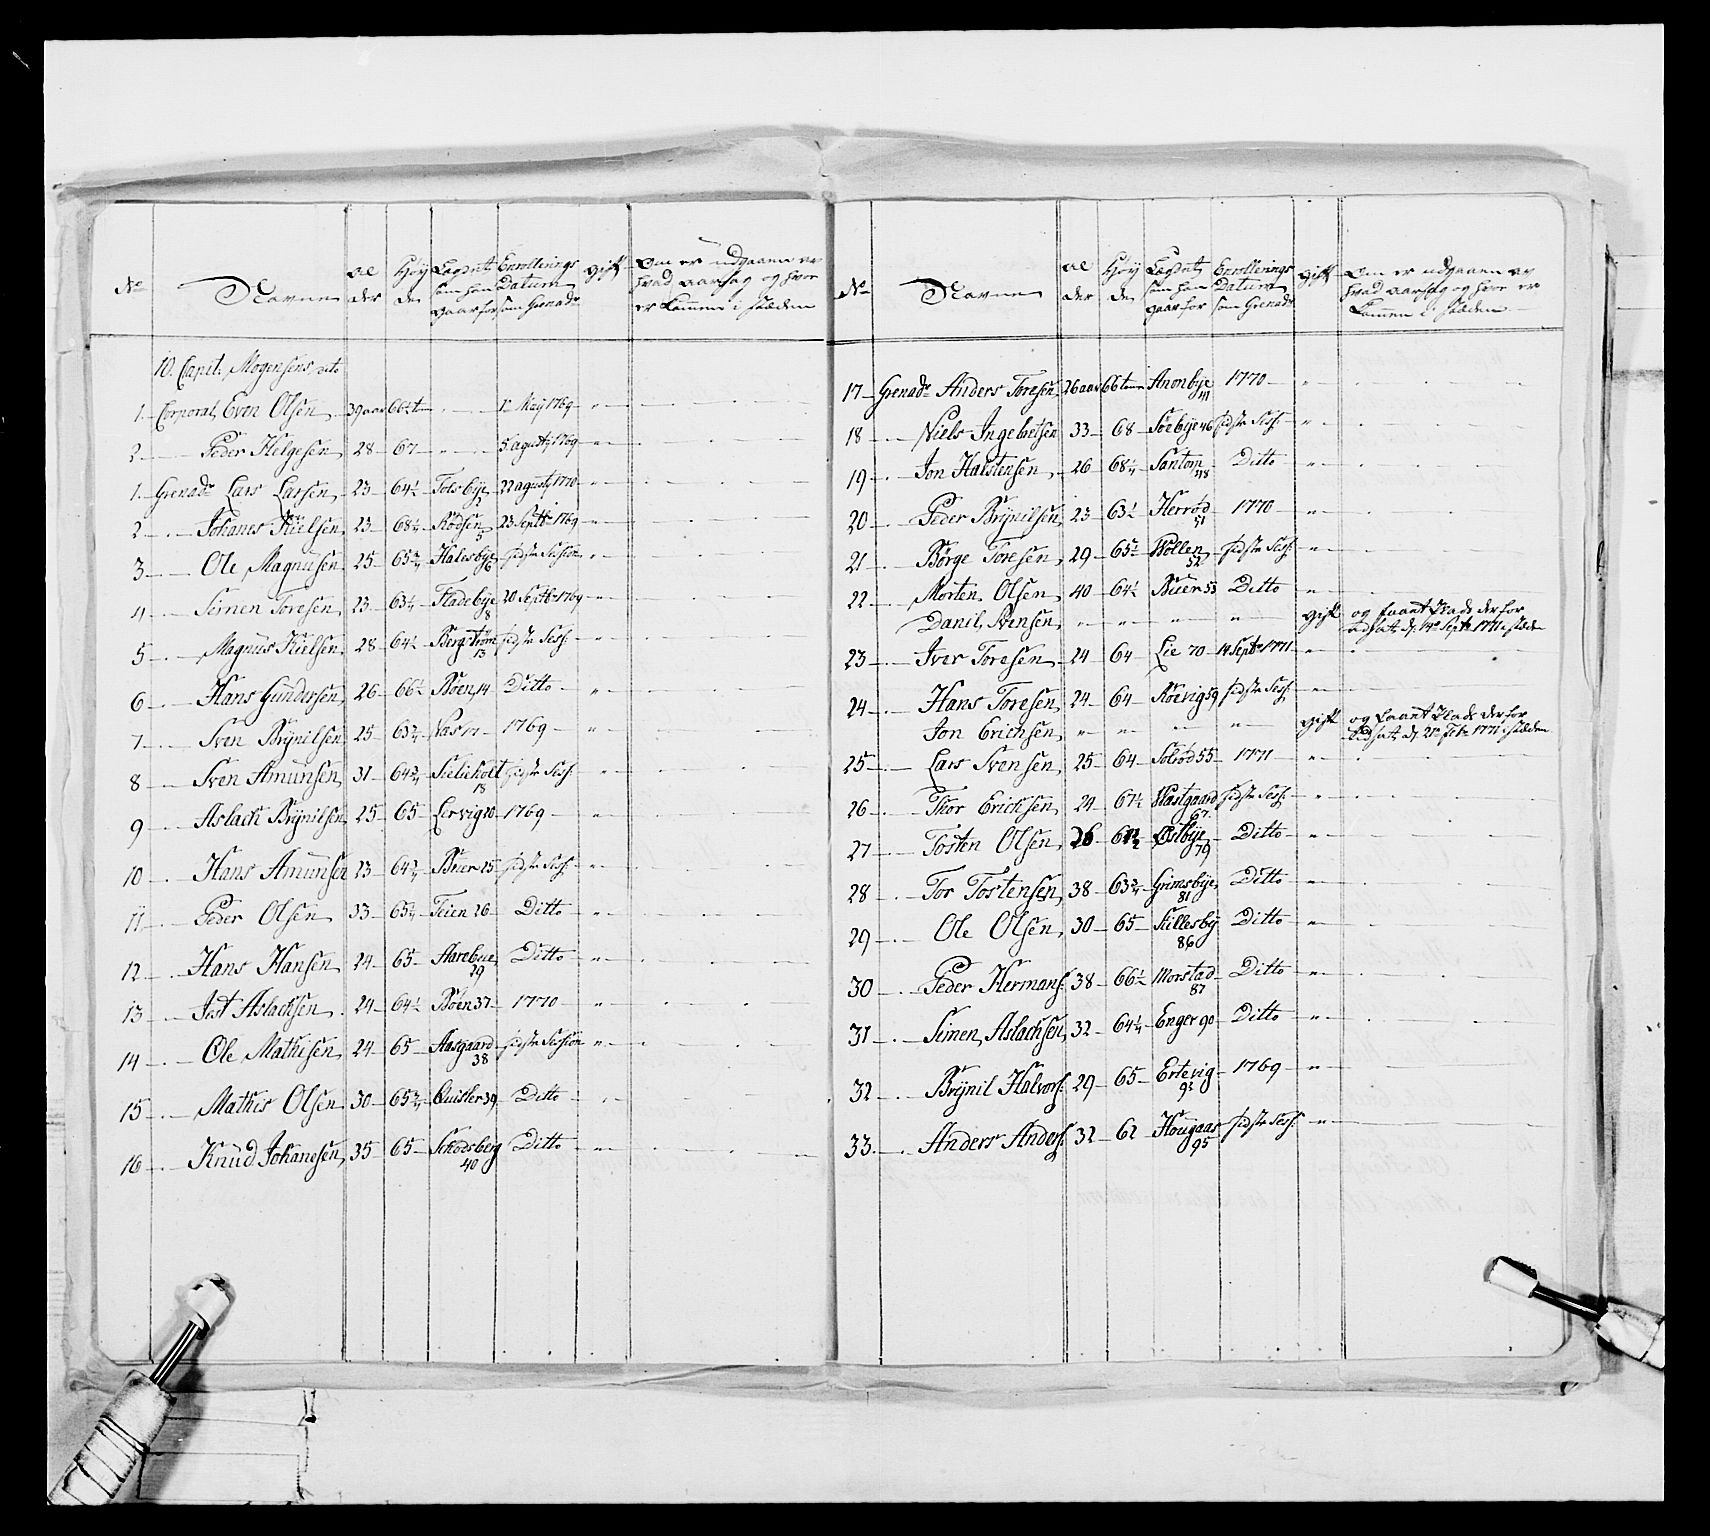 No Navne Alder Høyde Lægdet som han gaar for Enrollerings Datum som Grenadr gift Om er udgaaen av hvad aarsag og hvor er kommen i stæden
10. Capit: Mogensens,
1 Corporal, Even Olsen 39 aar 66 1 Maij 1769
2 Peder Helgesen 28 67 5 agust 1769
1 Grenadr Lars Larsen 23 64½ Tolsbÿe 2 22 agust 1770
2 Johanes Nielsen 23 68½ Rødsen 5 23 Septbr 1769
3 Ole Magnusen 25 65¾ Halesbÿe 6 sidste Session
4 Simen Toresen 23 63¼ Fladebÿe 8 20 Septbr 1769
5 Magnus Nielsen 28 64½ Bergstrøm 13 sidste Sess:
6 Hans Gundersen 26 66½ Bøen 14 Ditto
7 Sven Brÿnilsen 25 63¾ Aas 17 1769
8 Sven Amunsen 31 64¾ 18 sidste Sess:
9 Aslach Brÿnilsen 25 65 Lervig 20 1769
10 Hans Amunsen 23 64¾ Buer 25 sidste Sess:
11 Peder Olsen 33 65¾ Teien 26 Ditto
12 Hans Hansen 24 65 29 Ditto
13 Jost Aslachsen 24 64½ Bøen 37 1770
14 Ole Mathisen 24 65 Aasgaard 38 sidste Session
15 Mathis Olsen 30 65¾ Quisler 39 Ditto
16 Knud Johanesen 35 65 Schodsberg 40 Ditto
No Navne Alder Høyde Lægdet som han gaar for Enrollerings Datum som Grenadr gift Om er udgaaen av hvad aarsag og hvor er kommen i stæden
17 Grenadr Anders Toresen 26 aar 66 tom Anonbÿe 41 1770
18 Niels Ingebretsen 33 68 Søebÿe 46 sidste Sess:
19 Jon Halstensen 26 68¼ Santom 48 Ditto
20 Peder Brÿnilsen 23 63½ Herrød 51 1770
21 Børge Toresen 29 65¾ Wollen 52 sidste Sess:
22 Morten Olsen 40 64½ Buer 53 Ditto
Danil Svensen gift og faaet Plads derfor udsat d: 14 Septr 1771 i stæden
23 Iver Toresen 24 64 Lie 70 14 Septbr 1771
24 Hans Toresen 24 64 Røevig 59 sidste Sess:
Jon Erichsen gift og faaet Plads derfor udsat d: 21 Febr 1771 i stæden
25 Lars Svensen 25 64 Solrød 55 1771
26 Thor Erichsen 24 67½ Wastgaard 67 sidste Sess:
27 Tosten Olsen 26 Østbÿe 79 Ditto
28 Tor Tostensen 38 63¾ Grimsbÿe 81 Ditto
29 Ole Olsen 30 65 Killesbÿ 86 Ditto
30 Peder Hermans: 38 66½ Morstad 87 Ditto
31 Simen Aslachsen 32 64¼ Enger 90 Ditto
32 Brÿnil Halvors: 29 65 Ertevig 93 1769
33 Anders Anders: 32 62 Hougaas 95 sidste Sess: